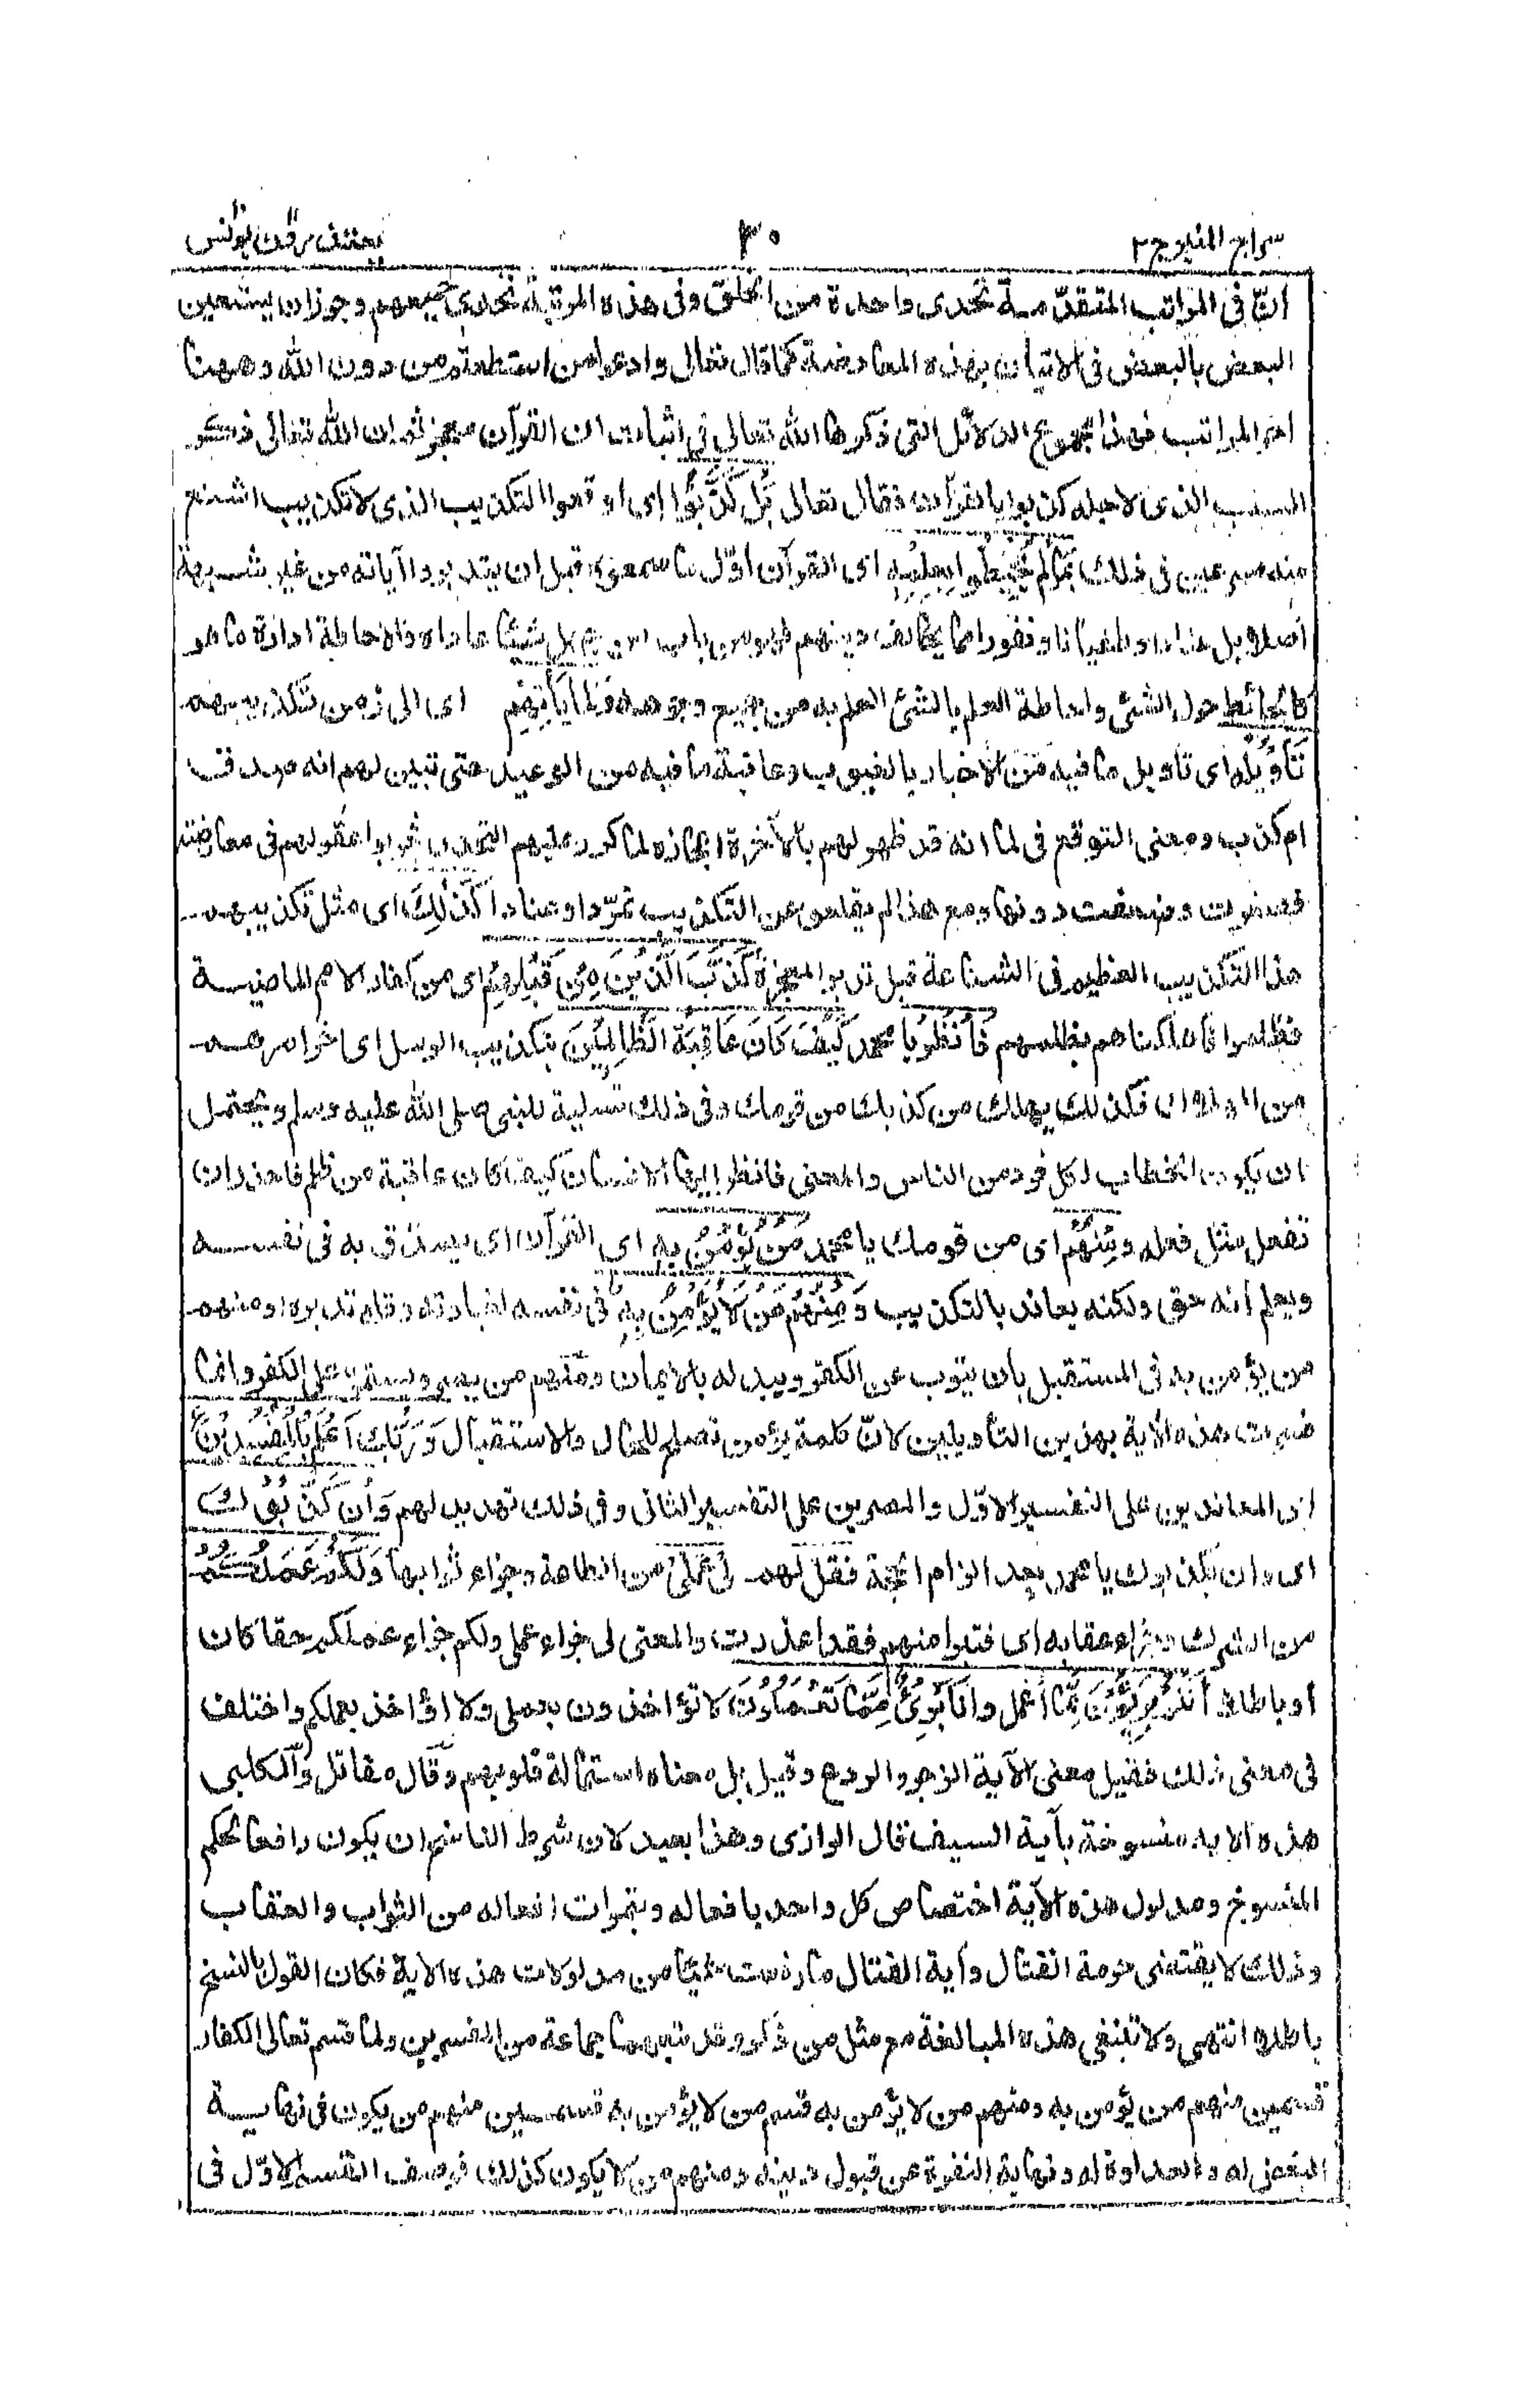 سراج المنير ج٢
٣٠
يونس
أن في المراتب المتقدّمة تحدى واحدة من الخلق وفى هذه المرتبة تحدي جميعهم وجوزان يستعين
البعض بالبعض فى الاتيان بهذه المعارضة كما قال تعالى وادعوا من استطعتم من دون الله وههنا
اخر المراتب فهذا مجموع الدلائل التى ذكرها الله تعالى فى اثبات ان القرآن معجز ثم ان الله تعالى ذكر
السبب الذى لاجله كذبوا بالقرآن فقال تعالى بَل كَذَّبُوا اى اوقعوا التكذيب الذى لا تكذيب اشنع
منه مسرعين فى ذلك بِمَا لَم يُحِيطُوا بِعِلمِهِ اى القرآن اوّل ما سمعوه قبل ان يتدبروا آياته من غير شبهة
أصلا بل عنادا وطغيانا ونفورا مما يخالف دينهم شيئا عاداه والاحاطة ادارة ما هو
كالحائط حول الشئ واحاطة العلم بالشئ العلم به من جميع وجوهه وَلَمَّا يَأتِهِم اى الى زمن تكذيبهم
تَأوِيلُه اى تاويل ما فيه من الاخبار بالغيوب وعاقبة ما فيه من الوعيد حتى تبين لهم انه صدق
ام كذب ومعنى التوقع فى لما انه قد ظهر لهم بالآخرة اعجازه لما كرر عليهم التحدى فجربوا عقولهم فى معارضته
وضعفت دونها ومع هذا لم يقلعوا عن التكذيب تمرّدا وعنادا كَذلِكَ اى مثل تكذيبهم
هذا التكذيب العظيم فى الشناعة قبل تدبر المعجزة كَذَّبَ الَّذِينَ مِن قَبلِهِم اى من كفار الامم الماضية
فظلموا فأهلكناهم بظلمهم فَانظُر يا محمد كَيفَ كَانَ عَاقِبَةُ الظَّالِمِينَ بتكذيب الرسل اى اخر امرهم
من الهلاك فكذلك يهلك من كذبك من قومك وفى ذلك تسلية للنبى صلى الله عليه وسلم ويحتمل
ان يكون الخطاب لكل فرد من الناس والمعنى فانظر ايها الانسان كيف كان عاقبة من ظلم فاحذر ان
تفعل مثل فعله وَمِنهُم اى من قومك يا محمد مَن يُؤمِنُ بِه اى القرآن اى يصدّق به فى نفسه
ويعلم أنه حق ولكنه يعاند بالتكذيب وَمِنهُم مَن لَا يُؤمِنُ بِهِ فى نفسه لغباوته وقلة تدبره او منهم
من يؤمن به فى المستقبل بان يتوب عن الكفر ويبدله بالايمان ومنهم من يصر ويستمر على الكفر وانما
فسرت هذه الآية بهذين التأويلين لانّ كلمة يؤمن تصلح للحال والاستقبال وَرَبُّكَ أَعلَمُ بِالمُفسِدِينَ
اى المعاندين على التفسير الاوّل والمصرين على التفسير الثانى وفى ذلك تهديد لهم وَإِن كَذَّبُوكَ
اى وان كذبوك يا محمد بعد الزام الحجة فَقُل لهم لِى عَمَلِى من الطاعة وجزاء ثوابها وَلَكُم عَمَلُكُم
من الشرك وجزاء عقابه اى فتبرأ منهم فقد اعذرت والمعنى لى جزاء عملى ولكم جزاء عملكم حقا كان
أو باطلا أَنتُم بَرِيئُونَ مِمَّا أَعمَلُ وَأَنَا بَرِىءٌ مِمَّا تَعمَلُونَ لا تؤاخذون بعملى ولا اؤاخذ بعملكم واختلف
فى معنى ذلك فقيل معنى الآية الزجر والردع وقيل بل معناه استمالة قلوبهم وقال مقاتل والكلبى
هذه الاية منسوخة بآية السيف قال الرازى وهذا بعيد لان شرط الناسخ ان يكون رافعا لحكم
المنسوخ ومدلول هذه الآية اختصاص كل واحد بافعاله وبثمرات افعاله من الثواب والعقاب
وذلك لا يقتضى حرمة القتال وآية القتال ما رفعت شيئا من مدلولات هذه الآية فكان القول بالنسخ
باطلا انتهى ولا تنبغى هذه المبالغة مع مثل من ذكر وقد تبعهما جماعة من المفسرين ولما قسم تعالى الكفار
قسمين منهم من يؤمن به ومنهم من لا يؤمن به قسم من لا يؤمن به قسمين منهم من يكون فى نهاية
البغض له والعداوة له ونهاية النفرة عن قبول دينه ومنهم من لا يكون كذلك فوصف القسم الاوّل فى